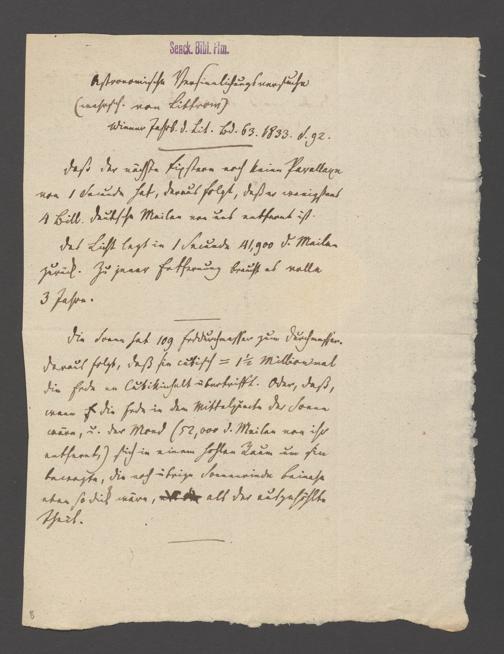 Senck. Bibl. Ffm.
Astronomische Versinnlichungsversuche
(wahrsch. von Littrow)
Wiener Jahrb. d. Lit. Bd. 63. 1833. S. 92.
Daß der nächste Fixstern noch keine Parallaxe
von 1 Secunde hat, daraus folgt, daß er wenigstens
4 Bill. deutsche Meilen von uns entfernt ist.
Das Licht legt in 1 Secunde 41,900 d. Meilen
zurück. Zu jener Entfernung braucht es volle
3 Jahre.
Die Sonne hat 109 Erddurchmesser zum Durchmesser.
daraus folgt, daß sie cubisch = 1½ Millionmal
die Erde an Cubikinhalt übertrifft. Oder, daß,
wenn die Erde in dem Mittelpuncte der Sonne
wäre, u. der Mond (52,000 d. Meilen von ihr
entfernt) sich in einem hohlen Raum um sie
bewegte, die noch übrige Sonnenrinde beinahe
eben so dick wäre, als der ausgehöhlte
Theil.
8